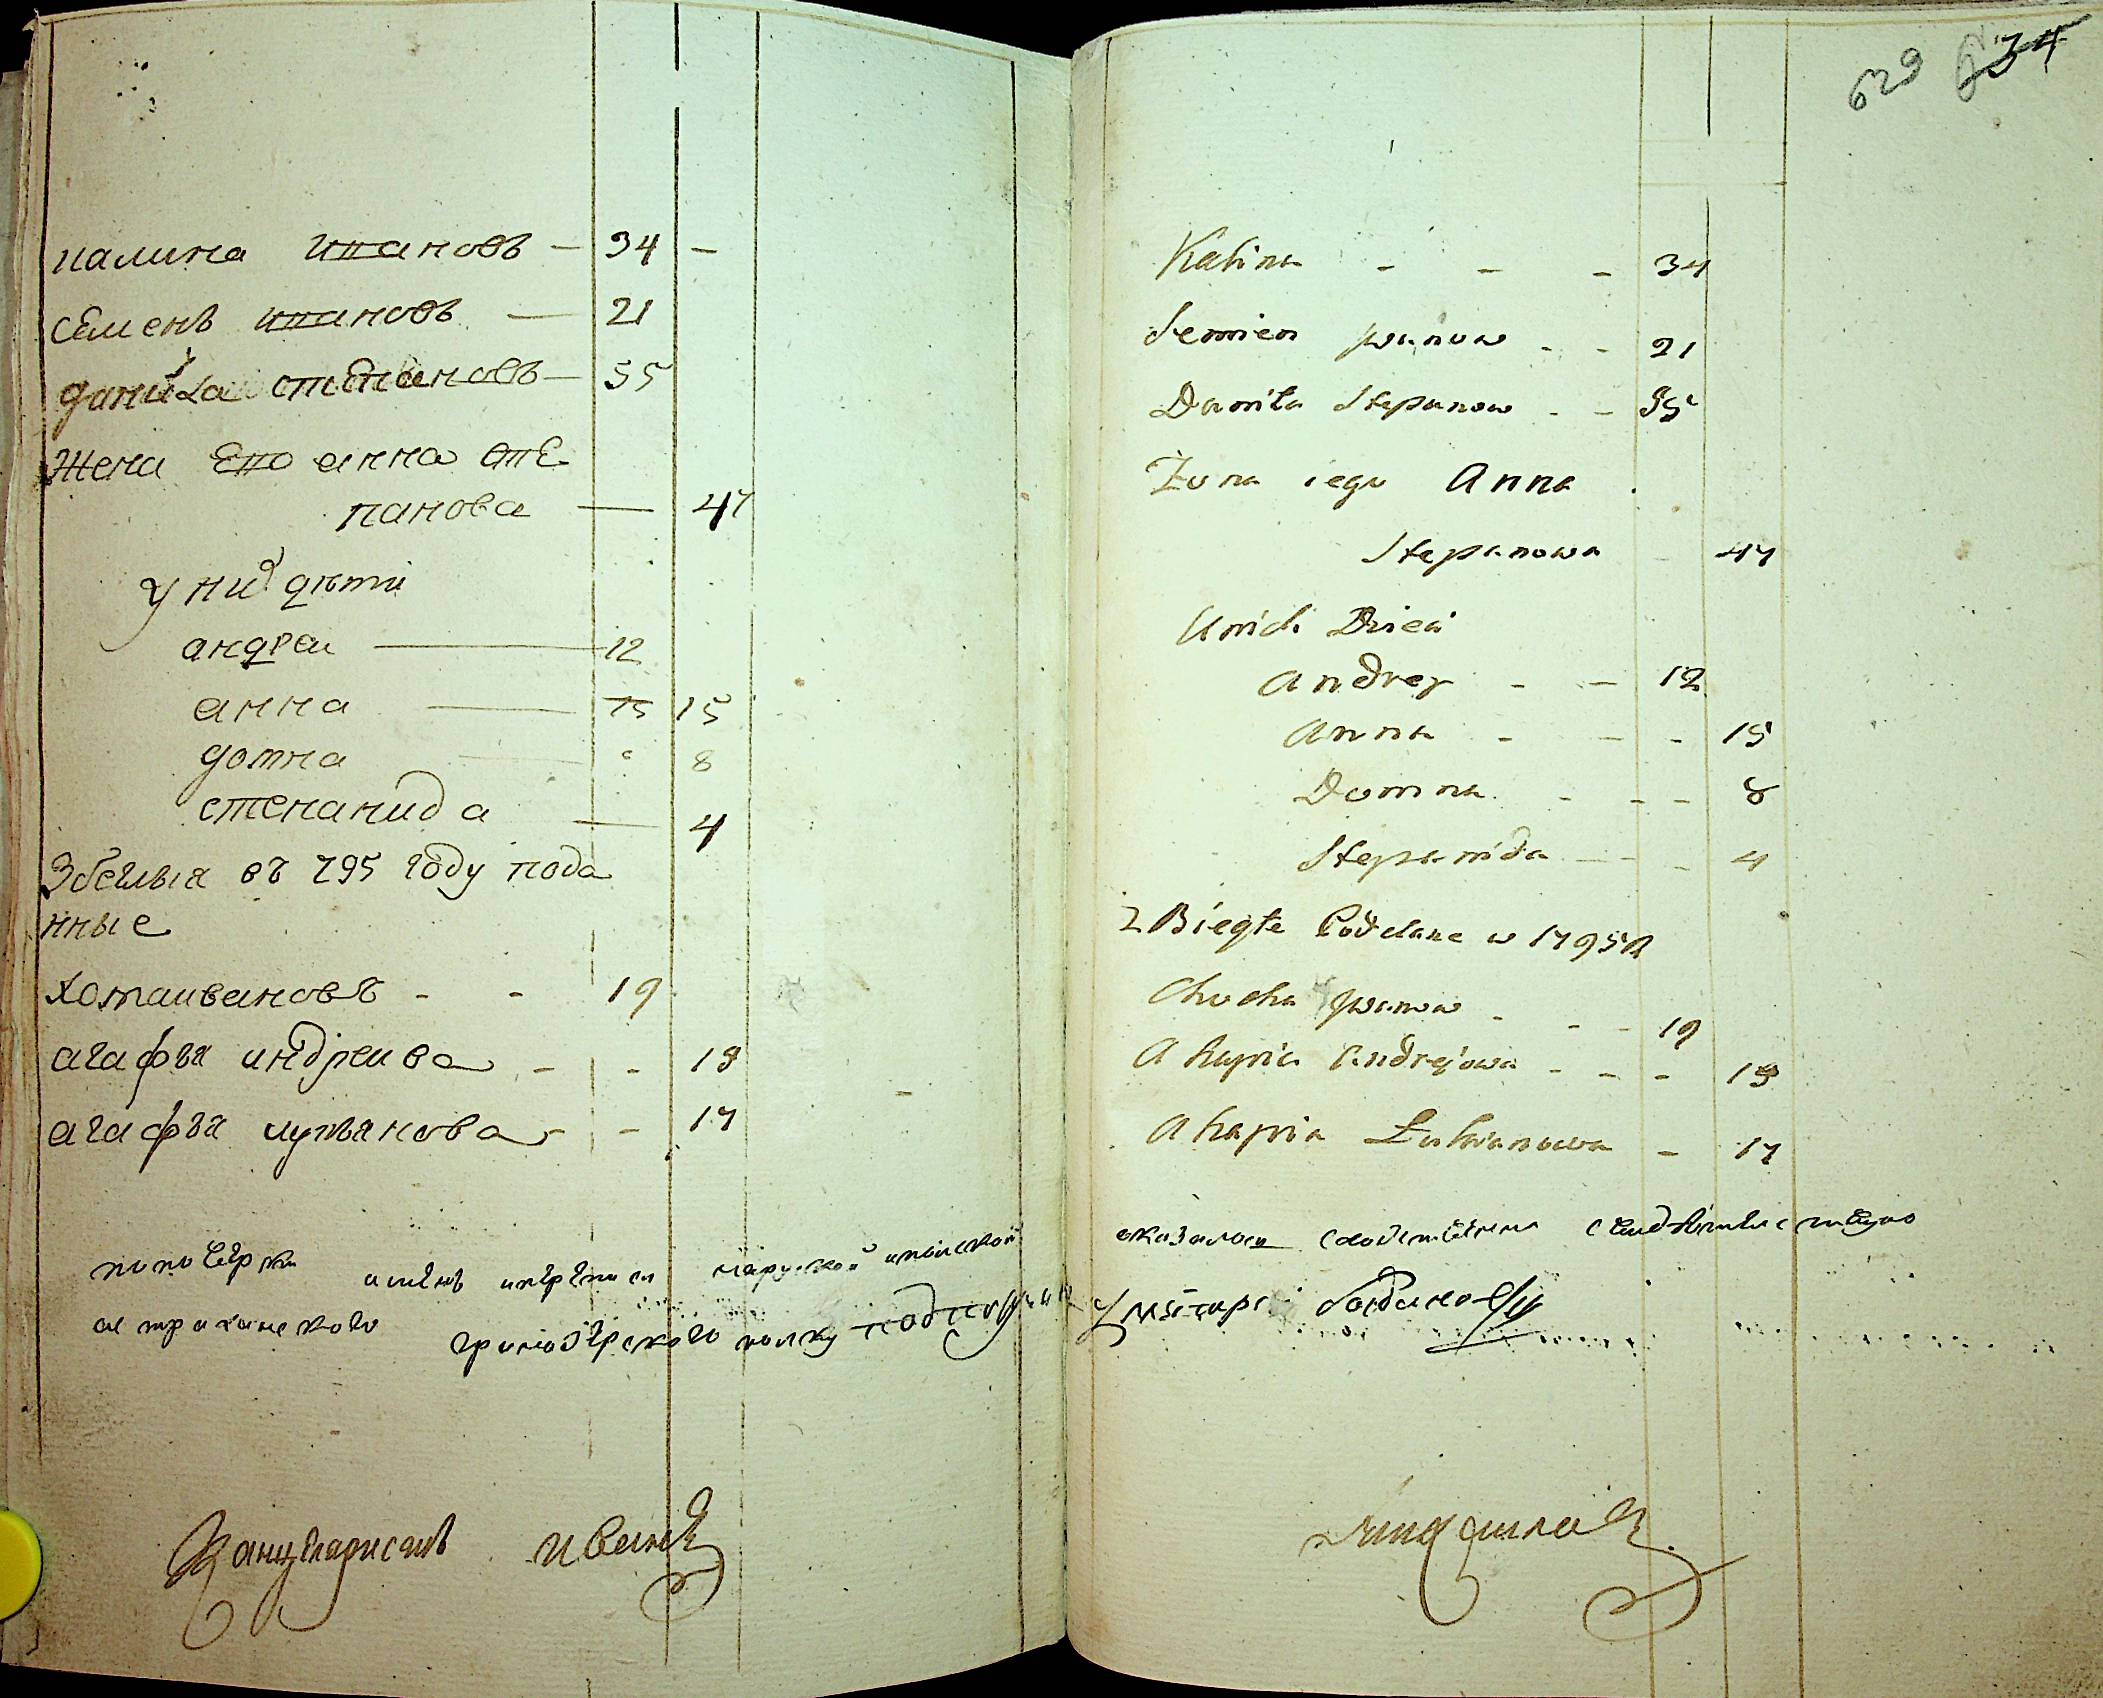 калина ивановъ — 34 —
семенъ ивановъ — 21
данила степановъ — 55
жена ево анна сте
панова — 47
у них дѣти
андреи — 12
анна — 15 15
домна — 8
степанида — 4
Збеглыя въ 795 году пода
нные
хома ивановъ - - 19
агафья андреива - - 18
агафья лукянова - - 17
по поверки имянъ
астраханского гринодерского полку подпору
Канцеляристъ иванъ
629 34
Kalina - - - 34
Semien Jwanow - - 21
Daniła Stepanow - - 55
Żona iego Anna
Stepanowa - 47
Unich Dzieci
Andrey - - 12
Anna - - - 15
Domna - - - 8
Stepanida - - 4
Z Biegłe Poddane w 1795 R
Choma Jwanow - - - 19
Ahapia Andrejowa - - - 18
Ahapia Łukianowa - 17
оказалось сходственна свидетельствую